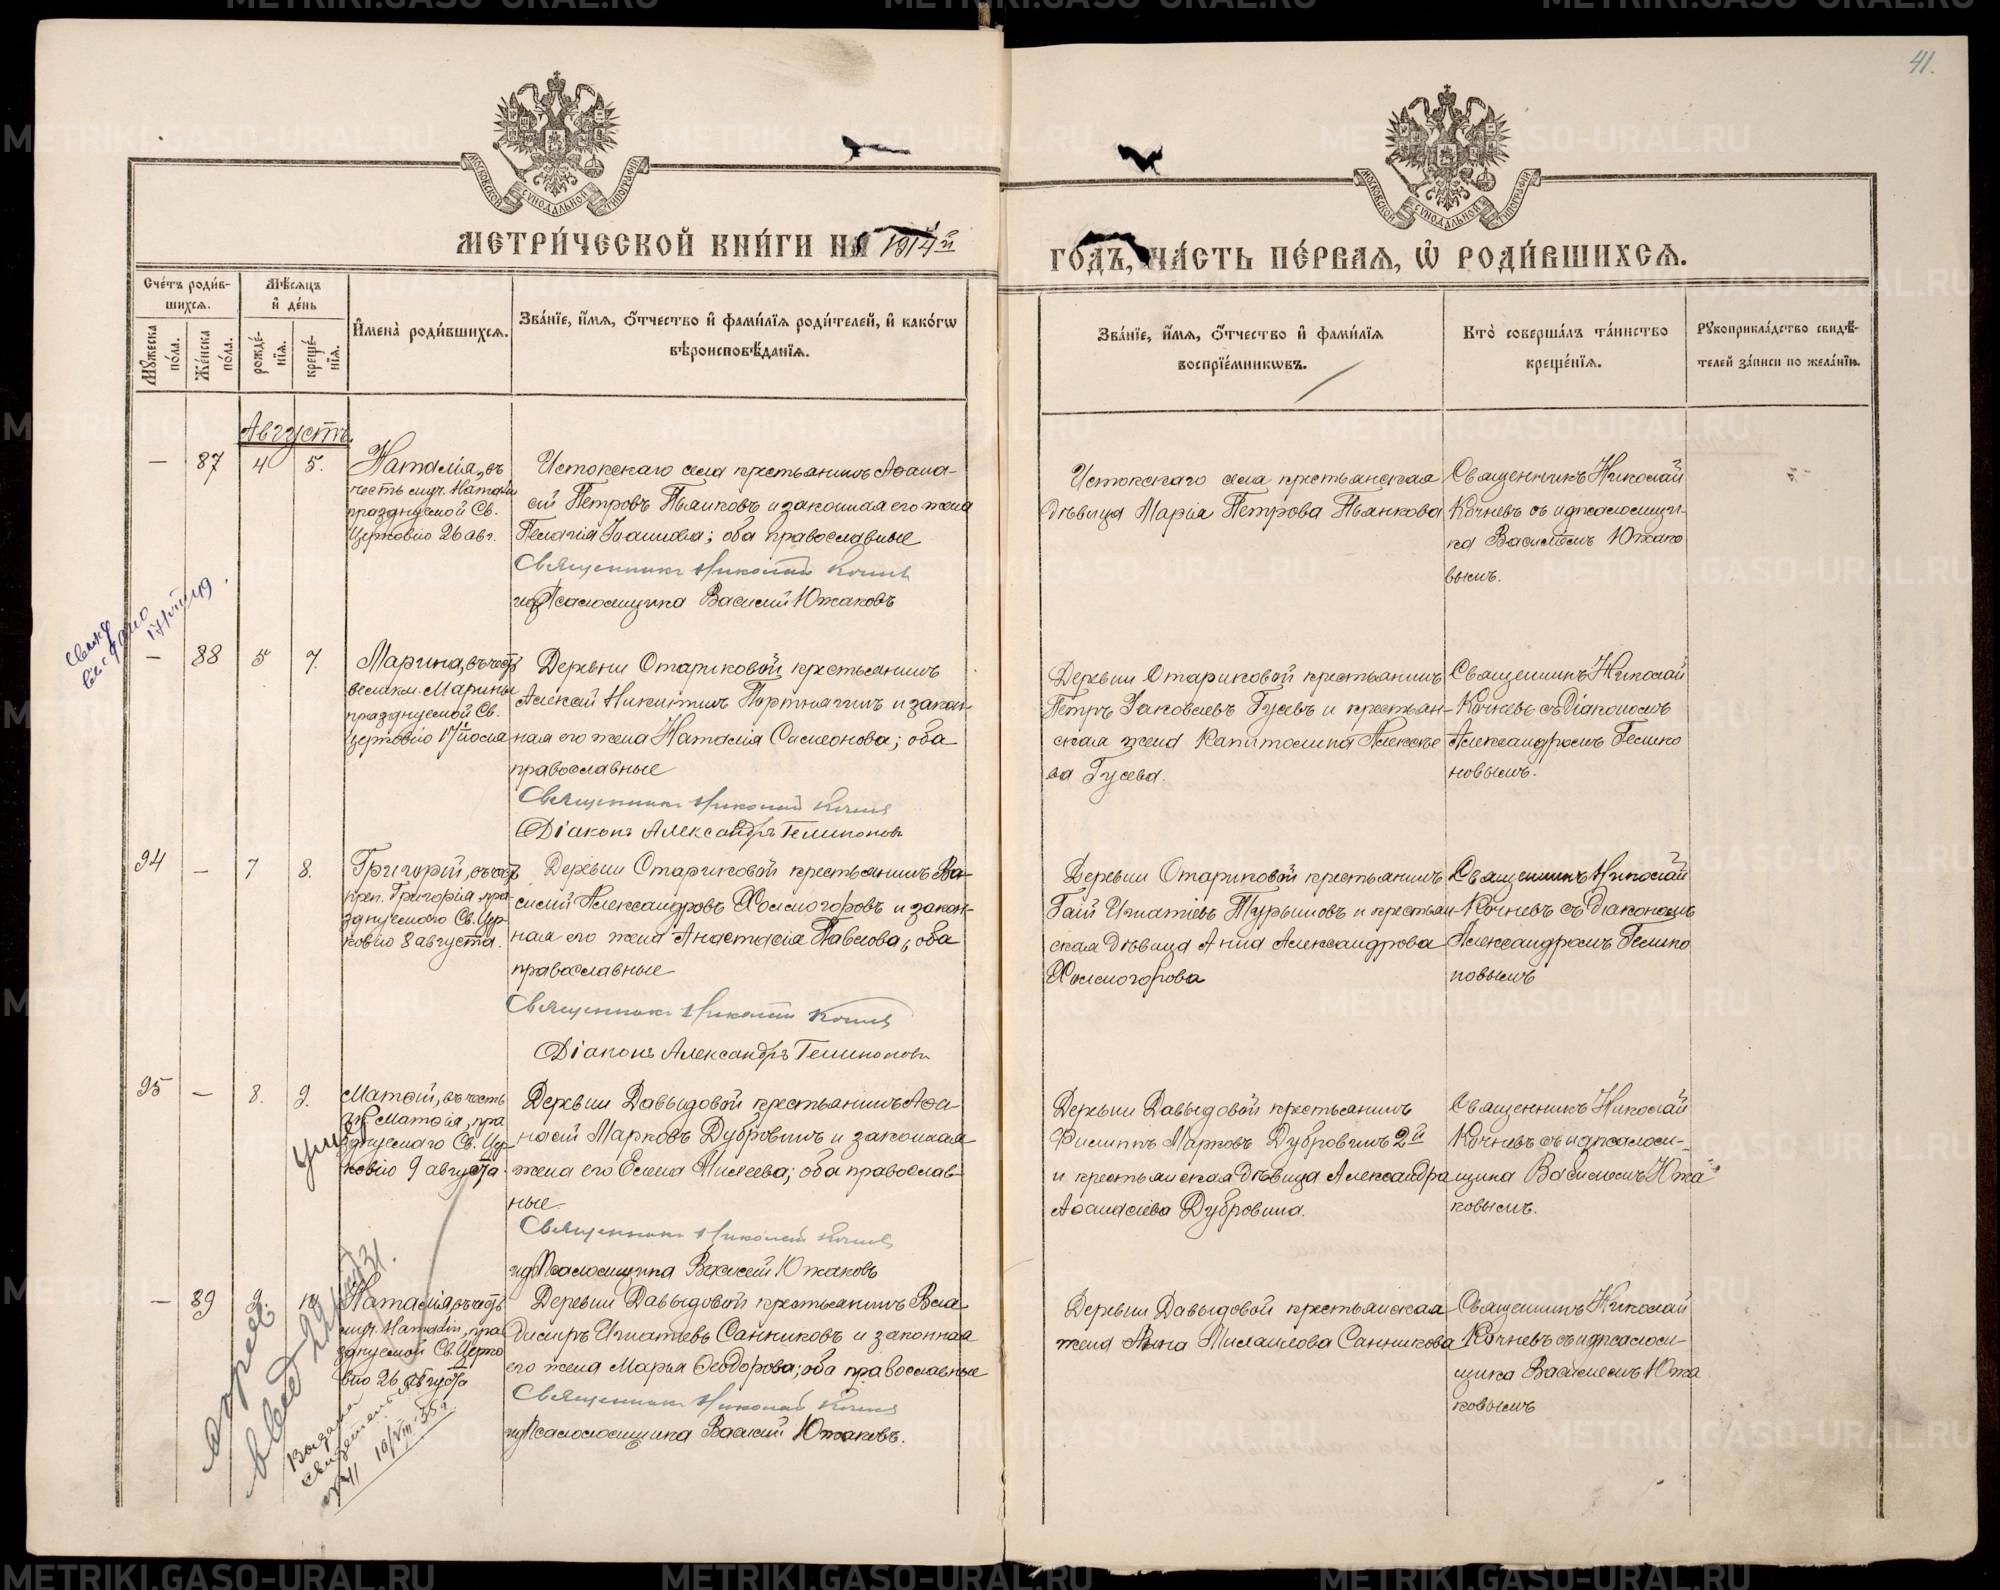 41.
МОСКОВСКОЙ СѴНОДАЛЬНОЙ ТИПОГРАФІИ
МОСКОВСКОЙ СѴНОДАЛЬНОЙ ТИПОГРАФІИ
МЕТРИ́ЧЕСКОЙ КНИ́ГИ НА 1914й
ГО́ДЪ, ЧА́СТЬ ПЕ́РВАЯ, Ѡ РОДИ́ВШИХСЯ.
Сче́тъ роди́в-
шихся.
Му́жеска по́ла.
Же́нска по́ла.
Мѣ́сяцъ
и де́нь
рожде́-
нія.
креще́-
нія.
Имена̀ роди́вшихся.
Зва́нїе, и́мя, о́тчество и фами́лїя роди́телей, и како́гѡ
вѣроисповѣ́данїя.
Зва́нїе, и́мя, о́тчество и фами́лїя
воспрїе́мникѡвъ.
Кто̀ соверша́лъ та́инство
креще́нїя.
Рукоприкла́дство свидѣ́-
телей за́писи по жела́нїю.
Августъ
— 87 4 5.
Наталія, въ
честь муч. Наталіи
празднуемой Св.
Церковію 26 авг.
Истокскаго села крестьянинъ Аѳана-
сій Петровъ Пьянковъ и законная его жена
Пелагія Іоаннова; оба православные
Священникъ Николай Кочневъ
ид Псаломщика Василій Южаковъ
Истокскаго села крестьянская
дѣвица Марія Петрова Пьянкова
Священникъ Николай
Кочневъ съ и д псаломщи-
ка Василіемъ Южако
вымъ.
17/VIII 19
— 88 5 7.
Марина, въ честь
великм. Марины
празднуемой Св.
церковію 17го іюля
Деревни Стариковой крестьянинъ
Алексій Никитинъ Портнягинъ и закон-
ная его жена Наталія Симеонова; оба
православные
Священникъ Николай Кочневъ
Діаконъ Александръ
Деревни Стариковой крестьянинъ
Петръ Іаковлевъ Гусевъ и крестьян-
ская жена Капитолина Алексѣе
ва Гусева.
Священникъ Николай
Кочневъ съ діакономъ
Александромъ
новымъ.
94 — 7 8.
Григорій, въ честь
преп. Григорія, пра-
зднуемаго Св. Цер-
ковію 8 августа.
Деревни Стариковой крестьянинъ Ва-
силій Александровъ Холмогоровъ и закон-
ная его жена Анастасія Павлова, оба
православные
Священникъ Николай Кочневъ
Діаконъ Александръ
Деревни Стариковой крестьянинъ
Гаій Игнатіевъ Турыновъ и крестьян-
ская дѣвица Анна Александрова
Холмогорова
Священникъ Николай
Кочневъ съ діакономъ
Александромъ
новымъ
95 — 8. 9.
Матѳій, въ честь
Матѳія, пра
зднуемаго Св. Цер-
ковію 9 августа.
Деревни Давыдовой крестьянинъ Аѳа
насій Марковъ Дубровинъ и законная
жена его Елена Михеева; оба православ-
ные.
Священникъ Николай Кочневъ
ид Псаломщика Василій Южаковъ
Деревни Давыдовой крестьянинъ
Филиппъ Марковъ Дубровинъ 2й
и крестьянская дѣвица Александра
Аѳанасіева Дубровина.
Священникъ Николай
Кочневъ съ и д псалом-
щика Василіемъ Южа
ковымъ.
— 89 9. 10
Наталія, въ честь
муч. Наталіи, пра
зднуемой Св. Церко
вію 26 августа
Деревни Давыдовой крестьянинъ Вла
димиръ Игнатіевъ Санниковъ и законная
его жена Марья Ѳеодорова; оба православные
Священникъ Николай Кочневъ
ид Псаломщика Василій Южаковъ.
Деревни Давыдовой крестьянская
жена Анна Михаилова Санникова
Священникъ Николай
Кочневъ съ и д псалом-
щика Василіемъ Южа
ковымъ
10/VIII 35 г.
METRIKI.GASO-URAL.RU